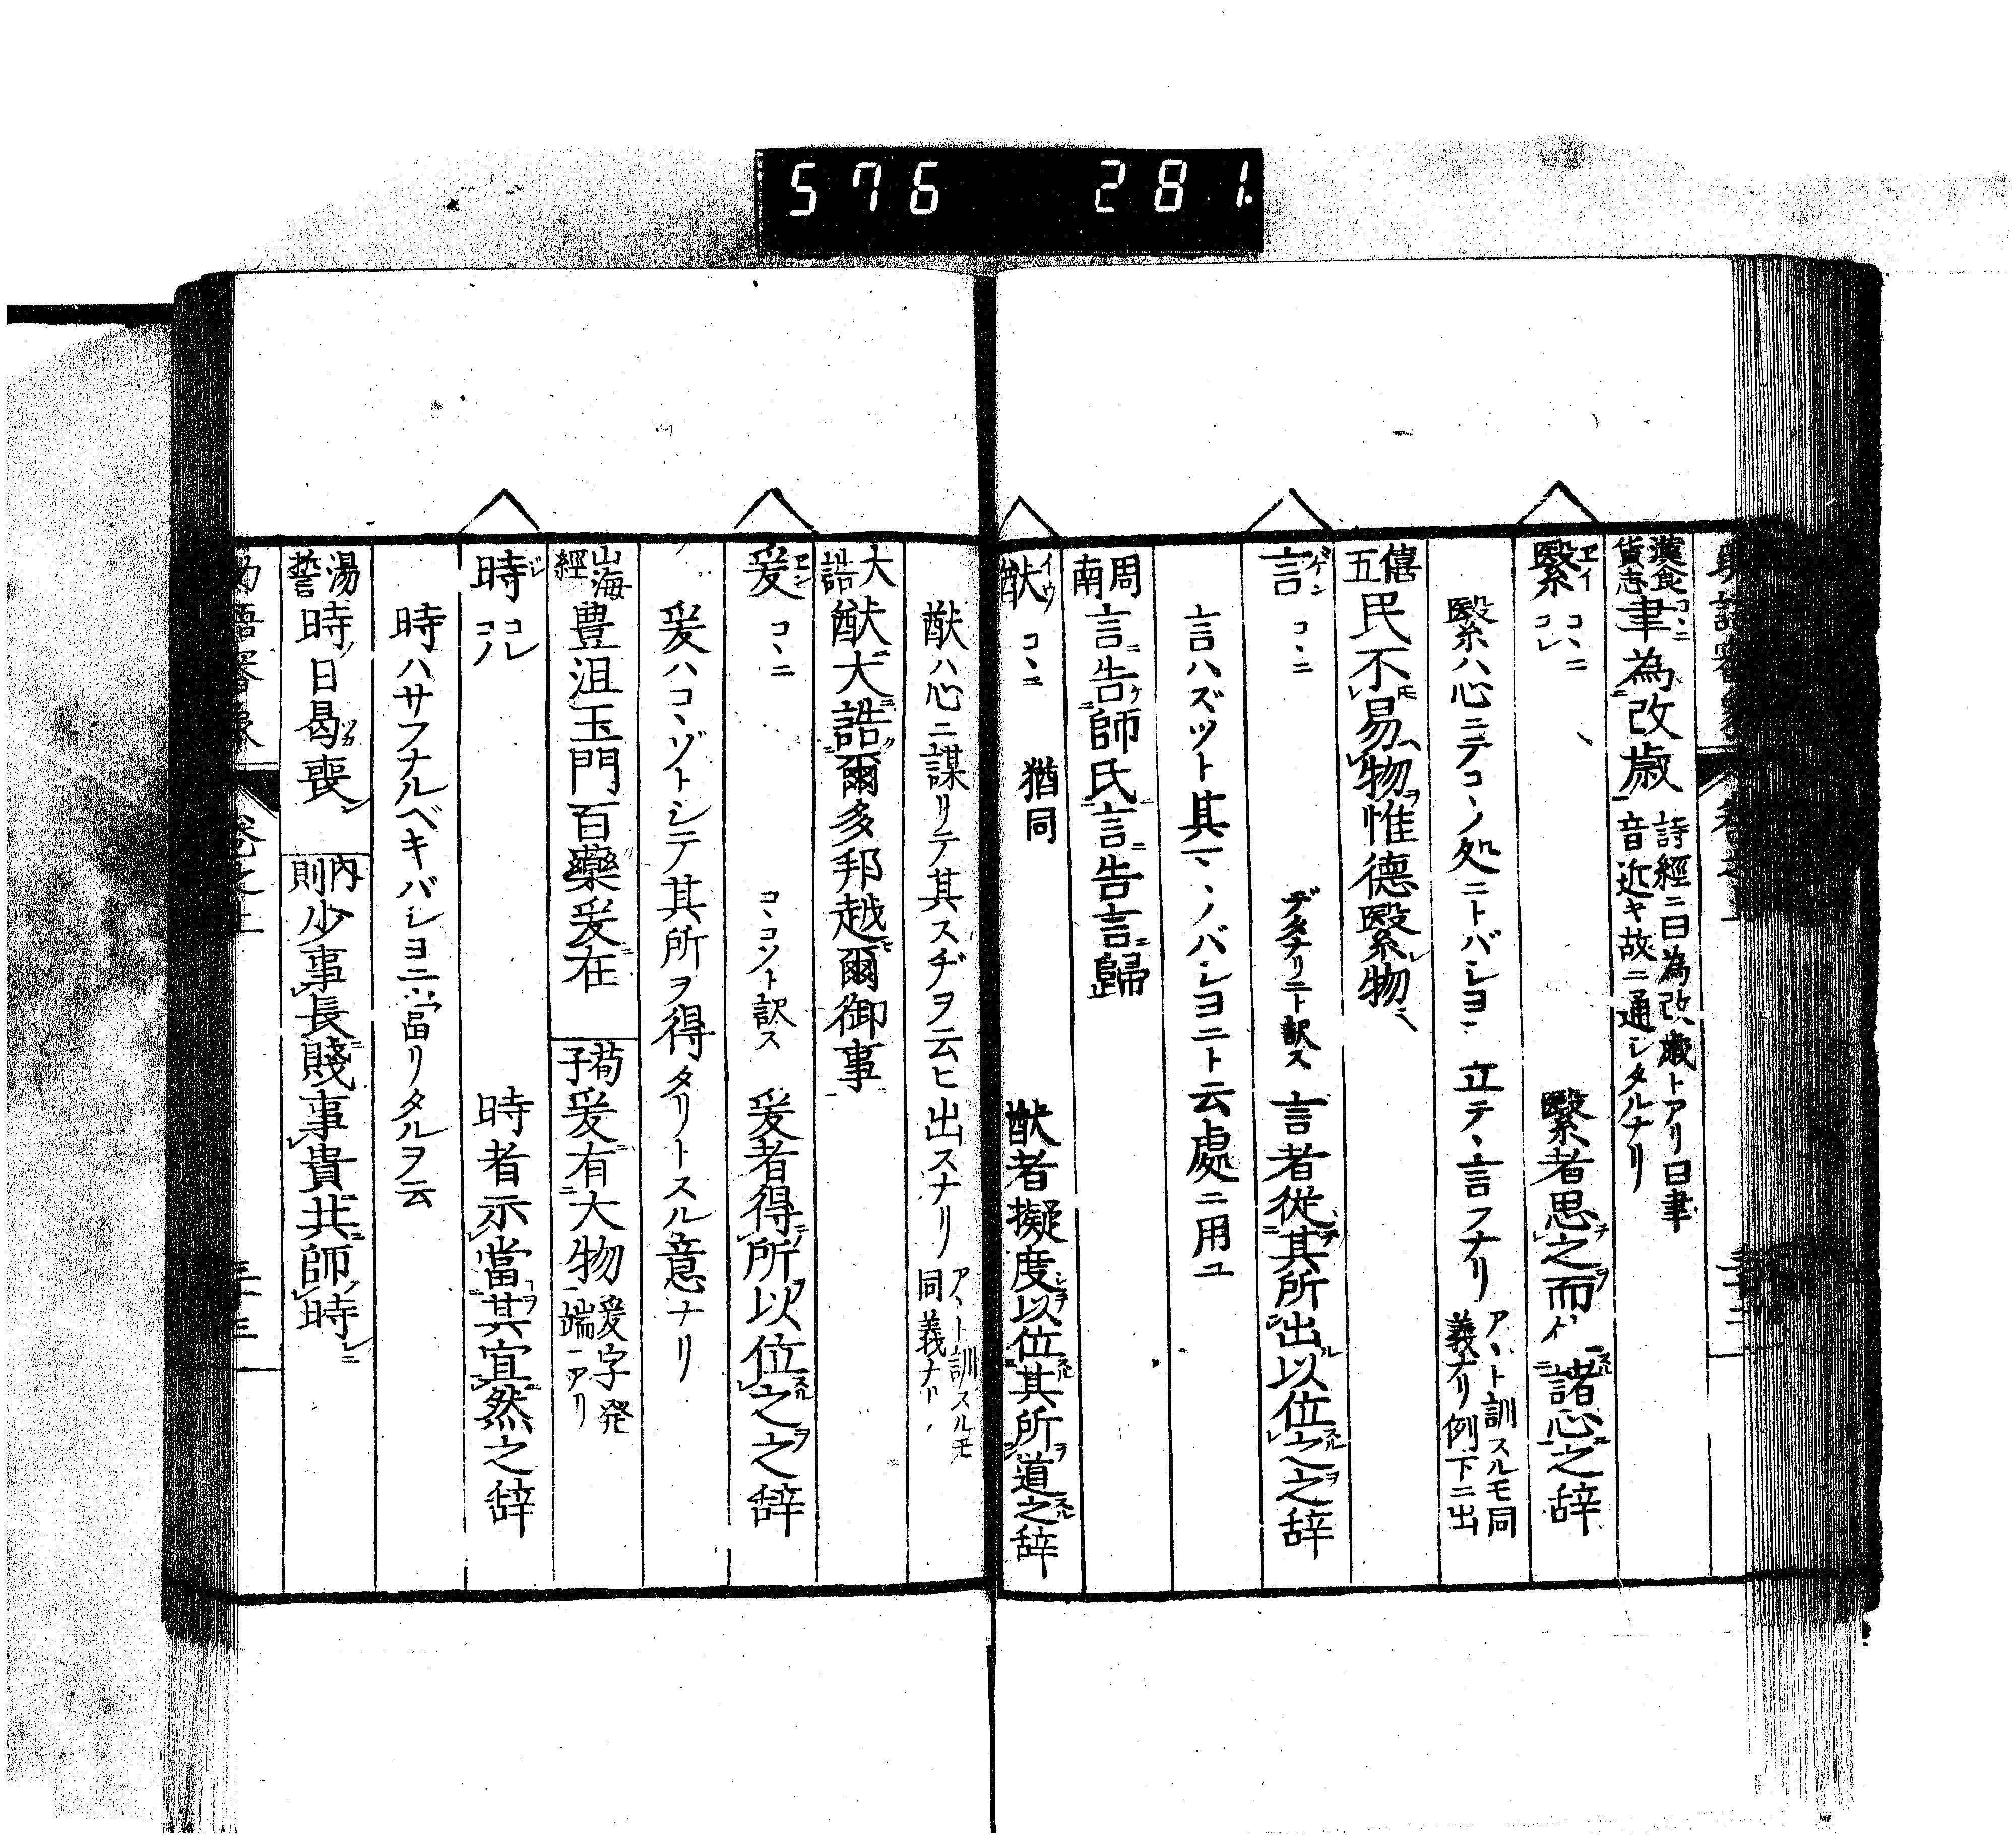 576 281.
漢食貨志 聿為改歳 詩經ニ曰為改歳トアリ曰聿音近キ故ニ通シタルナリ
繄 エイ コヽニ コレ 繄者思之而 諸心之辞
繄ハ心ニテコヽノ処ニトバシヨヲ立テヽ言フナリ アヽト訓スルモ同義ナリ例下ニ出
僖五 民不易物惟德繄物
言 ゲン コヽニ デタナリニト訳ス 言者從其所出以位之之辞
言ハズツト其マヽノバシヨニト云處ニ用ユ
周南 言告師氏言告言歸
猷 イウ コヽニ 猶同 猷者擬度以位其所道之辞
猷ハ心ニ謀リテ其スヂヲ云ヒ出スナリ アヽト訓スルモ同義ナリ
大誥 猷大誥爾多邦越爾御事
爰 ヱン コヽニ コヽコソト訳ス 爰者得所以位之之辞
爰ハコヽゾトシテ其所ヲ得タリトスル意ナリ
山海經 豊沮玉門百藥爰在 荀子 爰有大物 爰字発端ニアリ
時 ジ コレ コノ 時者示當其宜然之辞
時ハサフナルベキバシヨニ當リタルヲ云
湯誓 時日曷喪 内則 少事長賤事貴共師時